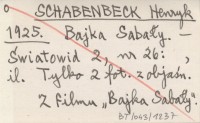 o SCHABENBECK Henryk
1925. Bajka Sabały. –
Światowid 2, nr 26: ,
il. Tylko 2 fot. z objaśn.
Z filmu „Bajka Sabały".
BT/043/1237